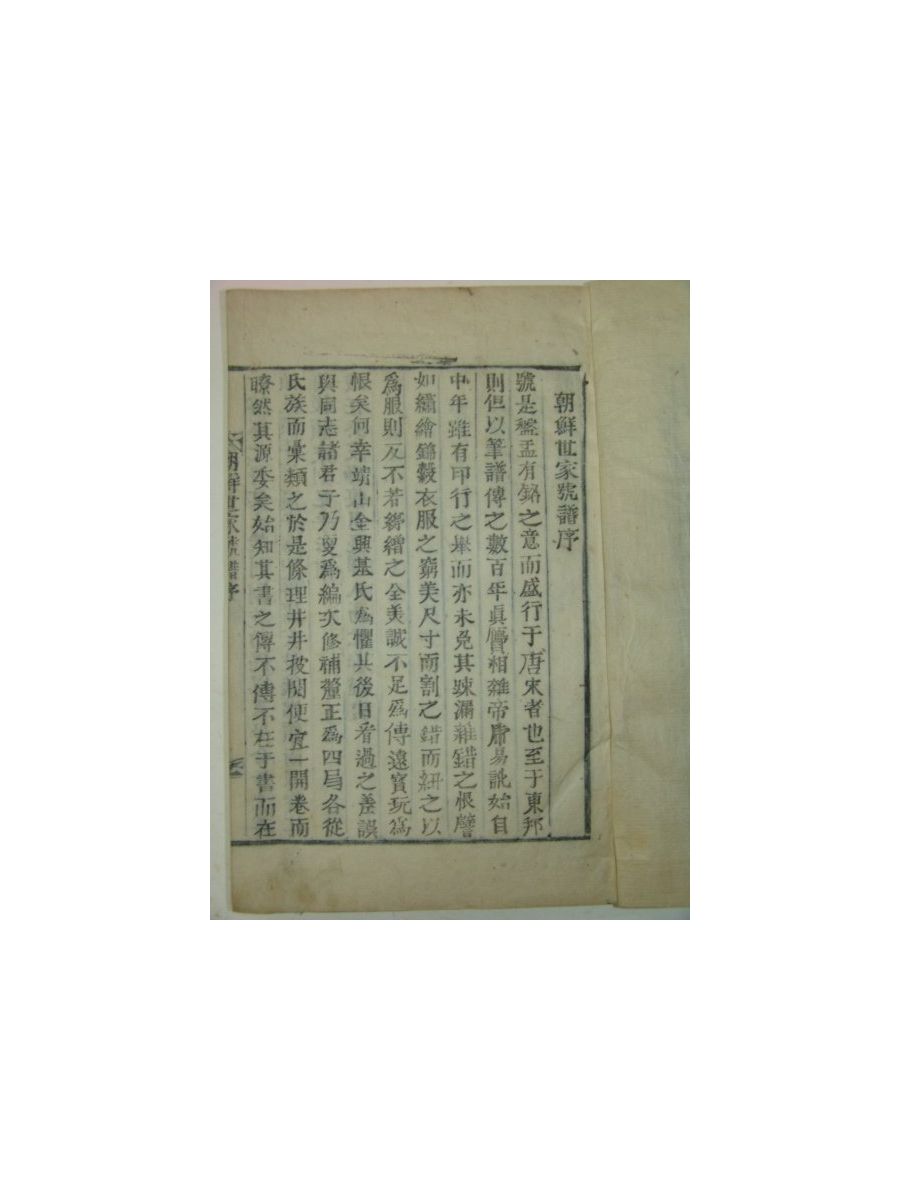 朝鮮世家號譜序
號是盤盂有銘之意而盛行于唐宋者也至于東邦
則但以筆譜傳之數百年眞贋相雜帝虎易訛始自
中年雖有印行之擧而亦未免其踈漏雜錯之恨譬
如繡繪錦縠衣服之窮美尺寸而割之錯而紐之以
爲服則反不若綈繒之全美誠不足爲傳遠寳玩爲
恨矣何幸靖山金興基氏爲懼其後日看過之差誤
與同志諸君子乃更爲編次修補釐正爲四局各從
氏族而彙類之於是條理井井披閱便宜一開卷而
瞭然其源委矣始知其書之傳不傳不在于書而在
朝鮮世家號譜序